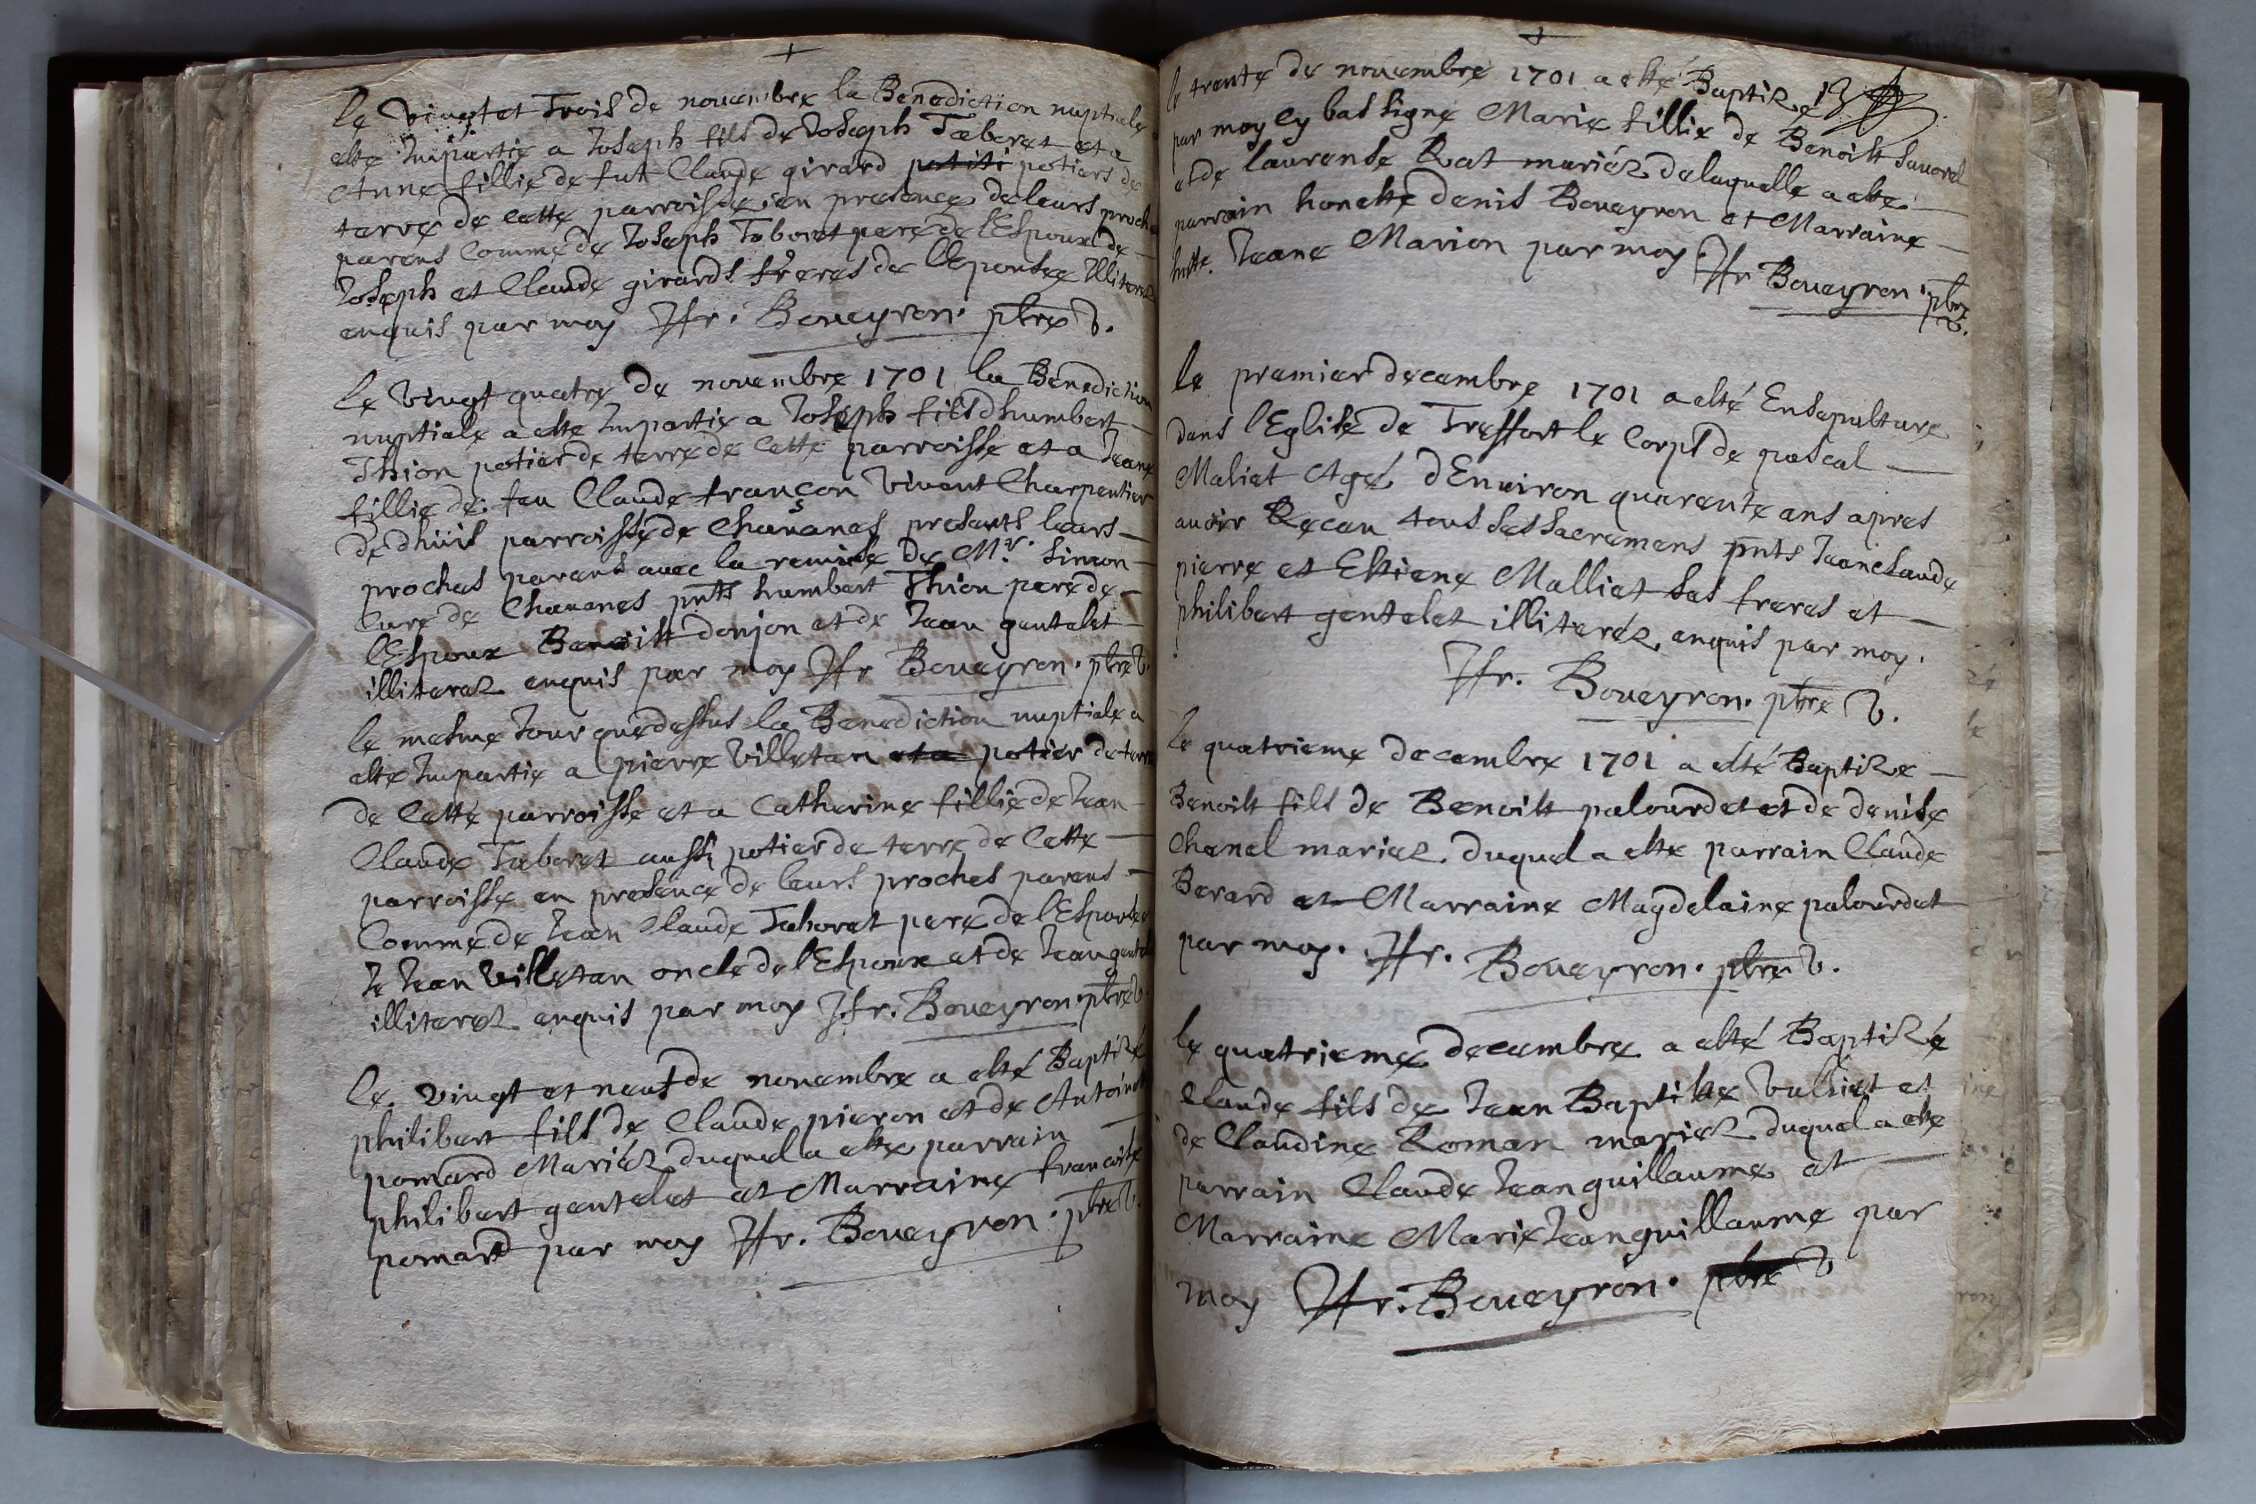 le vingt et Trois de novembre la Benediction nuptiale a
esté Impartie a Joseph fils de Joseph Taboret et a
Anne fillie de fut Claude girard potiti potiers de
terre de cette parroisse en presence de leurs proches
parens Comme de Joseph Taboret pere de l'Espoux de
Joseph et Claude girards freres de l'Eponsée Illiterez
enquis par moy Hr. Boueyron. pbre V.
le vingt quatre de novembre 1701 la Benediction
nuptiale a esté Impartie a Joseph fils d'humbert
Thion potier de terre de cette parroisse et a Jeane
fillie de feu Claude françon vivant Charpentier
de dhuis parroisse de Chavanes presents leurs
proches parens avec la remise de Mr. Simon
Curé de Chavanes pnts humbert Thion pere de
l'Espoux Benoist donjon et de Jean gentelet
illiterez enquis par moy Hr Boueyron. pbre V.
le mesme Jour que dessus la Benediction nuptiale a
esté Impartie a pierre villetan et a potier de terre
de cette parroisse et a Catherine fillie de Jean
Claude Taboret aussi potier de terre de Cette
parroisse en presence de leurs proches parens
Comme de Jean Claude Taboret pere de l'Espouse
de Jean villetan oncle de l'Espoux et de Jean gentelet
illiterez enquis par moy Hr. Boueyron. pbre V.
le. vingt et neuf de novembre a esté Baptizé
philibert fils de Claude pieron et de Antoinette
pomard Mariéz duquel a esté parrain
philibert gentelet et Marraine francoise
pomard par moy Hr. Boueyron. pbre V.
le trente de novembre 1701 a esté Baptizé
par moy cy bas signe Marie fillie de Benoist Savorel
et de laurense Rat mariéz de laquelle a esté
parrain honeste denis Boueyron et Marraine
hnste. Jeane Marion par moy Hr Boueyron. pbre
V.
le premier decembre 1701 a esté Ensepulture
dans l'Eglise de Treffort le Corps de pascal
Maliet Agé d'Environ quarente ans apres
avoir Receu tous ses sacremens pnts Jeanclaude
pierre et Estiene Malliet ses freres et
philibert gentelet illiteréz enquis par moy.
Hr. Boueyron. pbre V.
le quatrieme decembre 1701 a esté Baptize
Benoist fils de Benoist palourdet et de denise
Chanel mariez. duquel a esté parrain Claude
Berard et Marraine Magdelaine palourdet
par moy. Hr. Boueyron. pbre V.
le quatrieme decembre a esté Baptizé
Claude fils de Jean Baptiste vulliet et
de Claudine Roman mariez duquel a esté
parrain Claude Jeanguillaume et
Marraine Marie Jeanguillaume par
moy Hr. Boueyron. pbre V